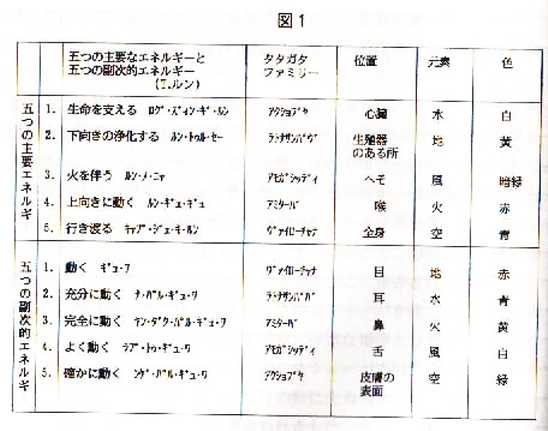 図1
五つの主要なエネルギーと 五つの副次的エネルギー (T.ルン) タタガタ ファミリー 位置 元素 色
五つの主要エネルギ
1. 生命を支える ログ・ズィン・ギ・ルン アクショブヤ 心臓 水 白
2. 下向きの浄化する ルン・トゥル・セー ラトナサンバヴァ 生殖器のある所 地 黄
3. 火を伴う ルン・メ・ニャ アモガシッディ へそ 風 暗緑
4. 上向きに動く ルン・ギェ・ギュ アミターバ 喉 火 赤
5. 行き渡る キャブ・ジェ・キ・ルン ヴァイローチャナ 全身 空 青
五つの副次的エネルギ
1. 動く ギュ・ワ ヴァイローチャナ 目 地 赤
2. 充分に動く ナ・パル・ギュ・ワ ラトナサンバヴァ 耳 水 青
3. 完全に動く ヤン・ダク・パル・ギュ・ワ アミターバ 鼻 火 黄
4. よく動く ラブ・トゥ・ギュ・ワ アモガシッディ 舌 風 白
5. 確かに動く ンゲ・パル・ギュ・ワ アクショブヤ 皮膚の表面 空 緑